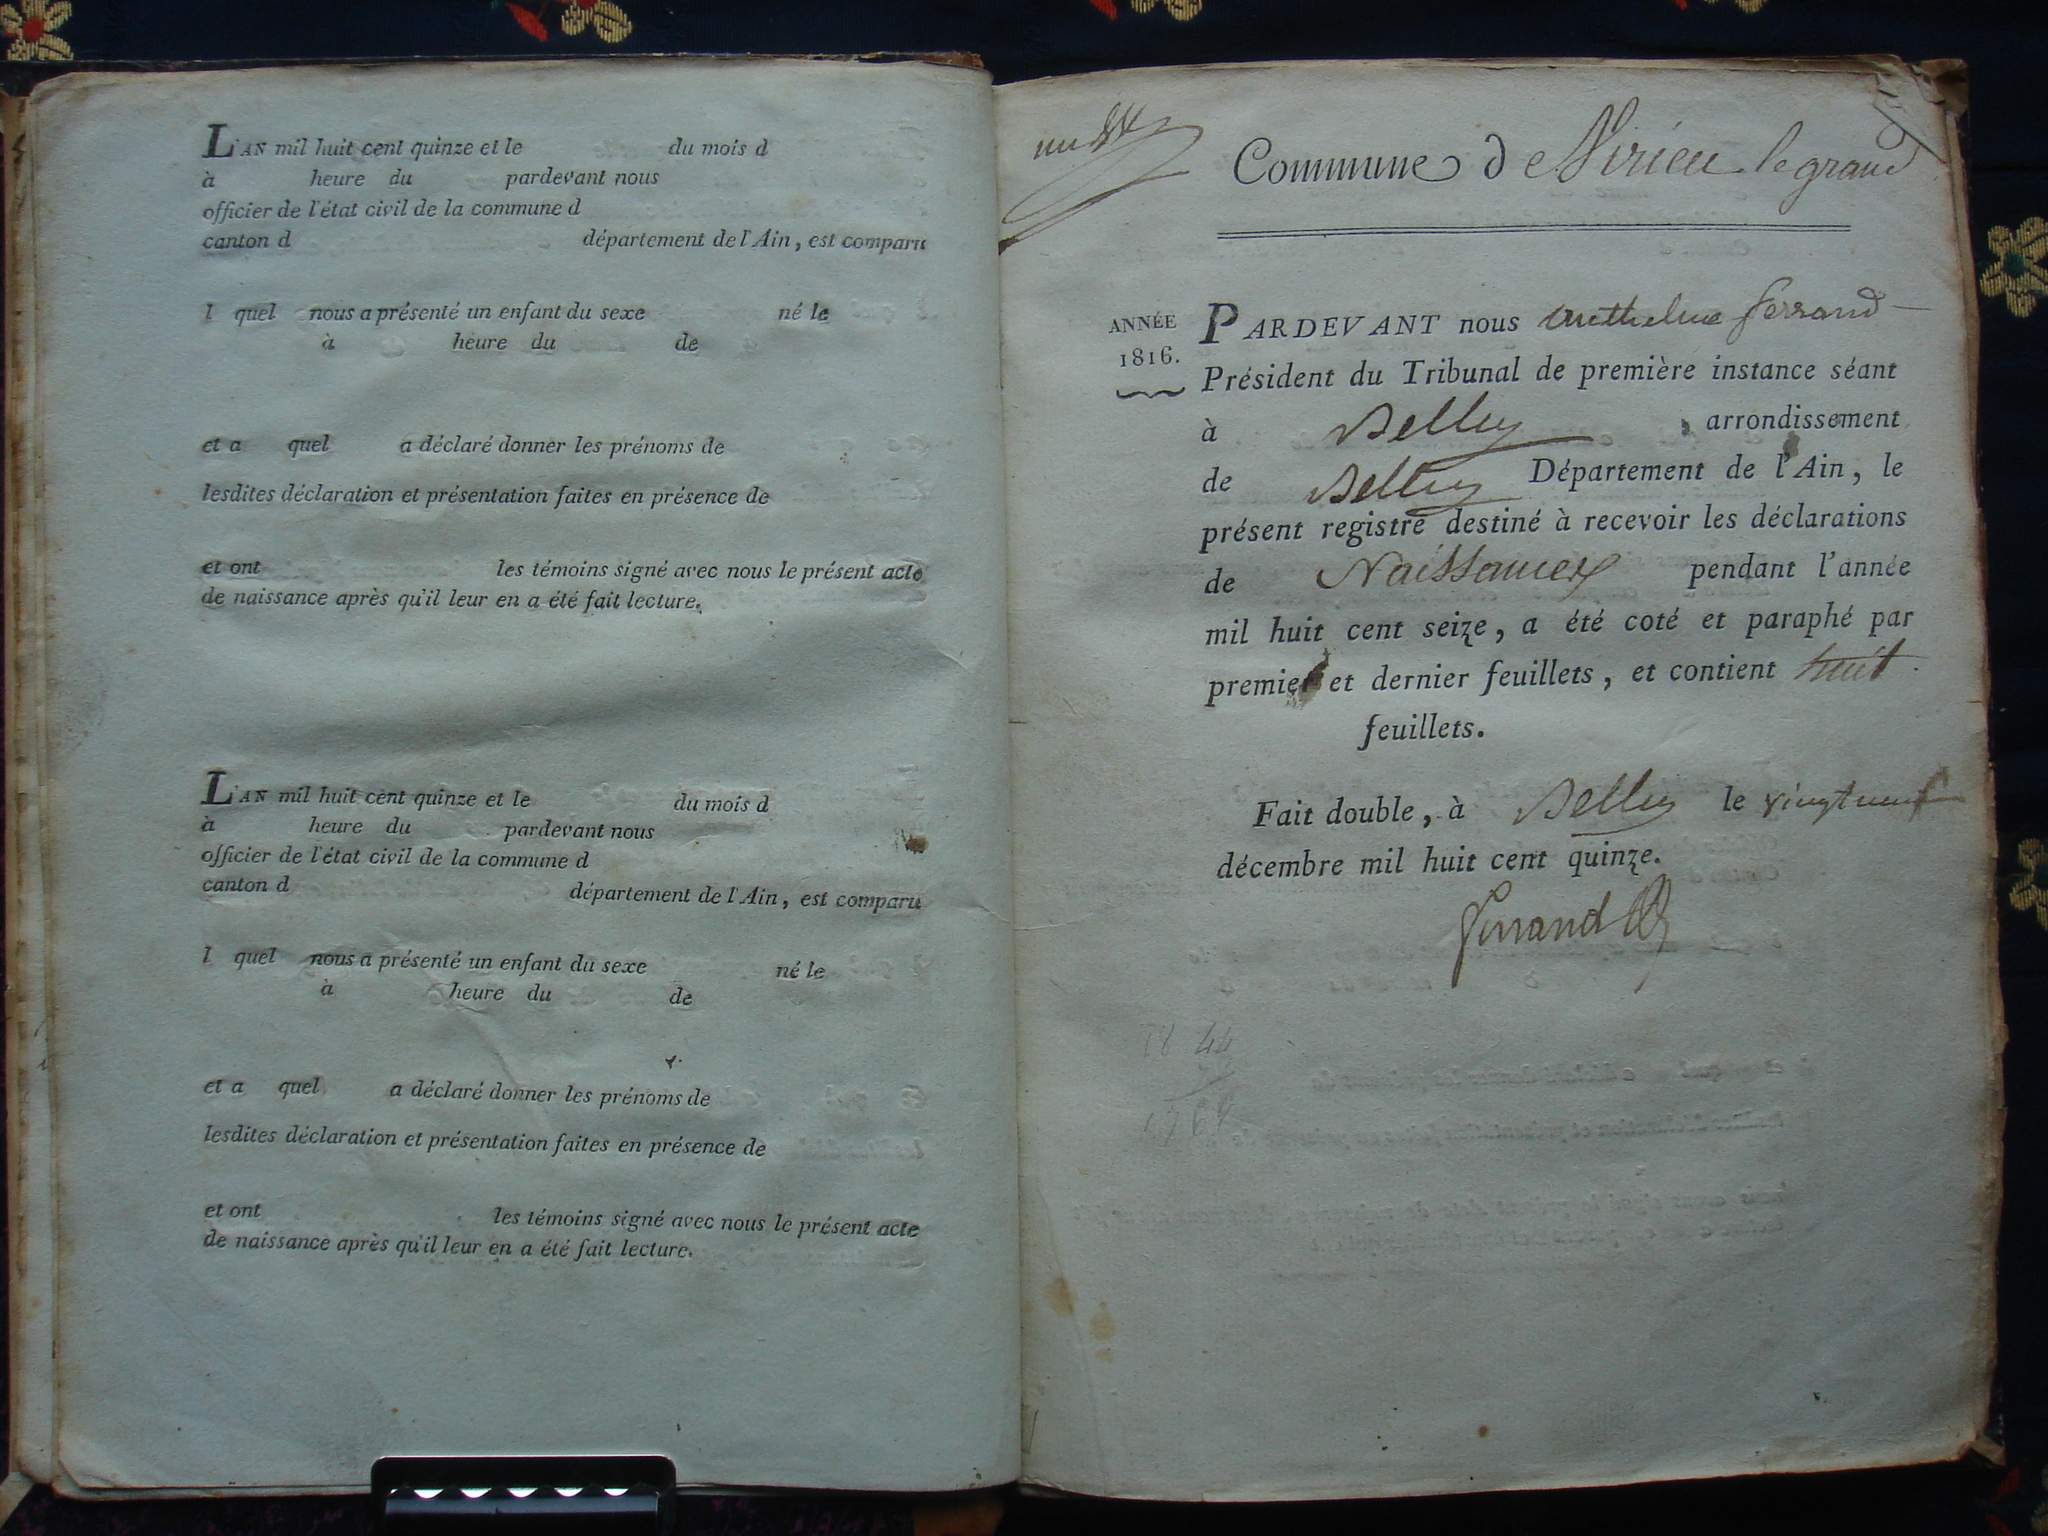 L'AN mil huit cent quinze et le du mois d
à heure du pardevant nous
officier de l'état civil de la commune d
canton d département de l'Ain, est comparu
l quel nous a présenté un enfant du sexe né le
à heure du de
et a quel a déclaré donner les prénoms de
lesdites déclaration et présentation faites en présence de
et ont les témoins signé avec nous le présent acte
de naissance après qu'il leur en a été fait lecture.
L'AN mil huit cent quinze et le du mois d
à heure du pardevant nous
officier de l'état civil de la commune d
canton d département de l'Ain, est comparu
l quel nous a présenté un enfant du sexe né le
à heure du de
et a quel a déclaré donner les prénoms de
lesdites déclaration et présentation faites en présence de
et ont les témoins signé avec nous le présent acte
de naissance après qu'il leur en a été fait lecture.
Commune de Virieu le grand
ANNÉE
1816.
PARDEVANT nous Anthelme ferrand
Président du Tribunal de première instance séant
à Belley, arrondissement
de Belley Département de l'Ain, le
présent registre destiné à recevoir les déclarations
de Naissances pendant l'année
mil huit cent seize, a été coté et paraphé par
premier et dernier feuillets, et contient huit
feuillets.
Fait double, à Belley le vingt neuf
décembre mil huit cent quinze.
ferrand
18 44